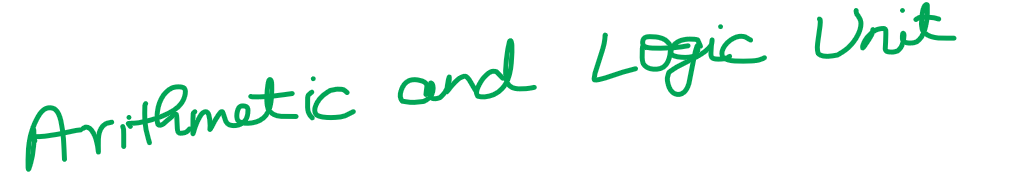 Arithmetic and Logic Unit